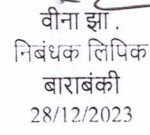 वीना झा .
निबंधक लिपिक
बाराबंकी
28/12/2023